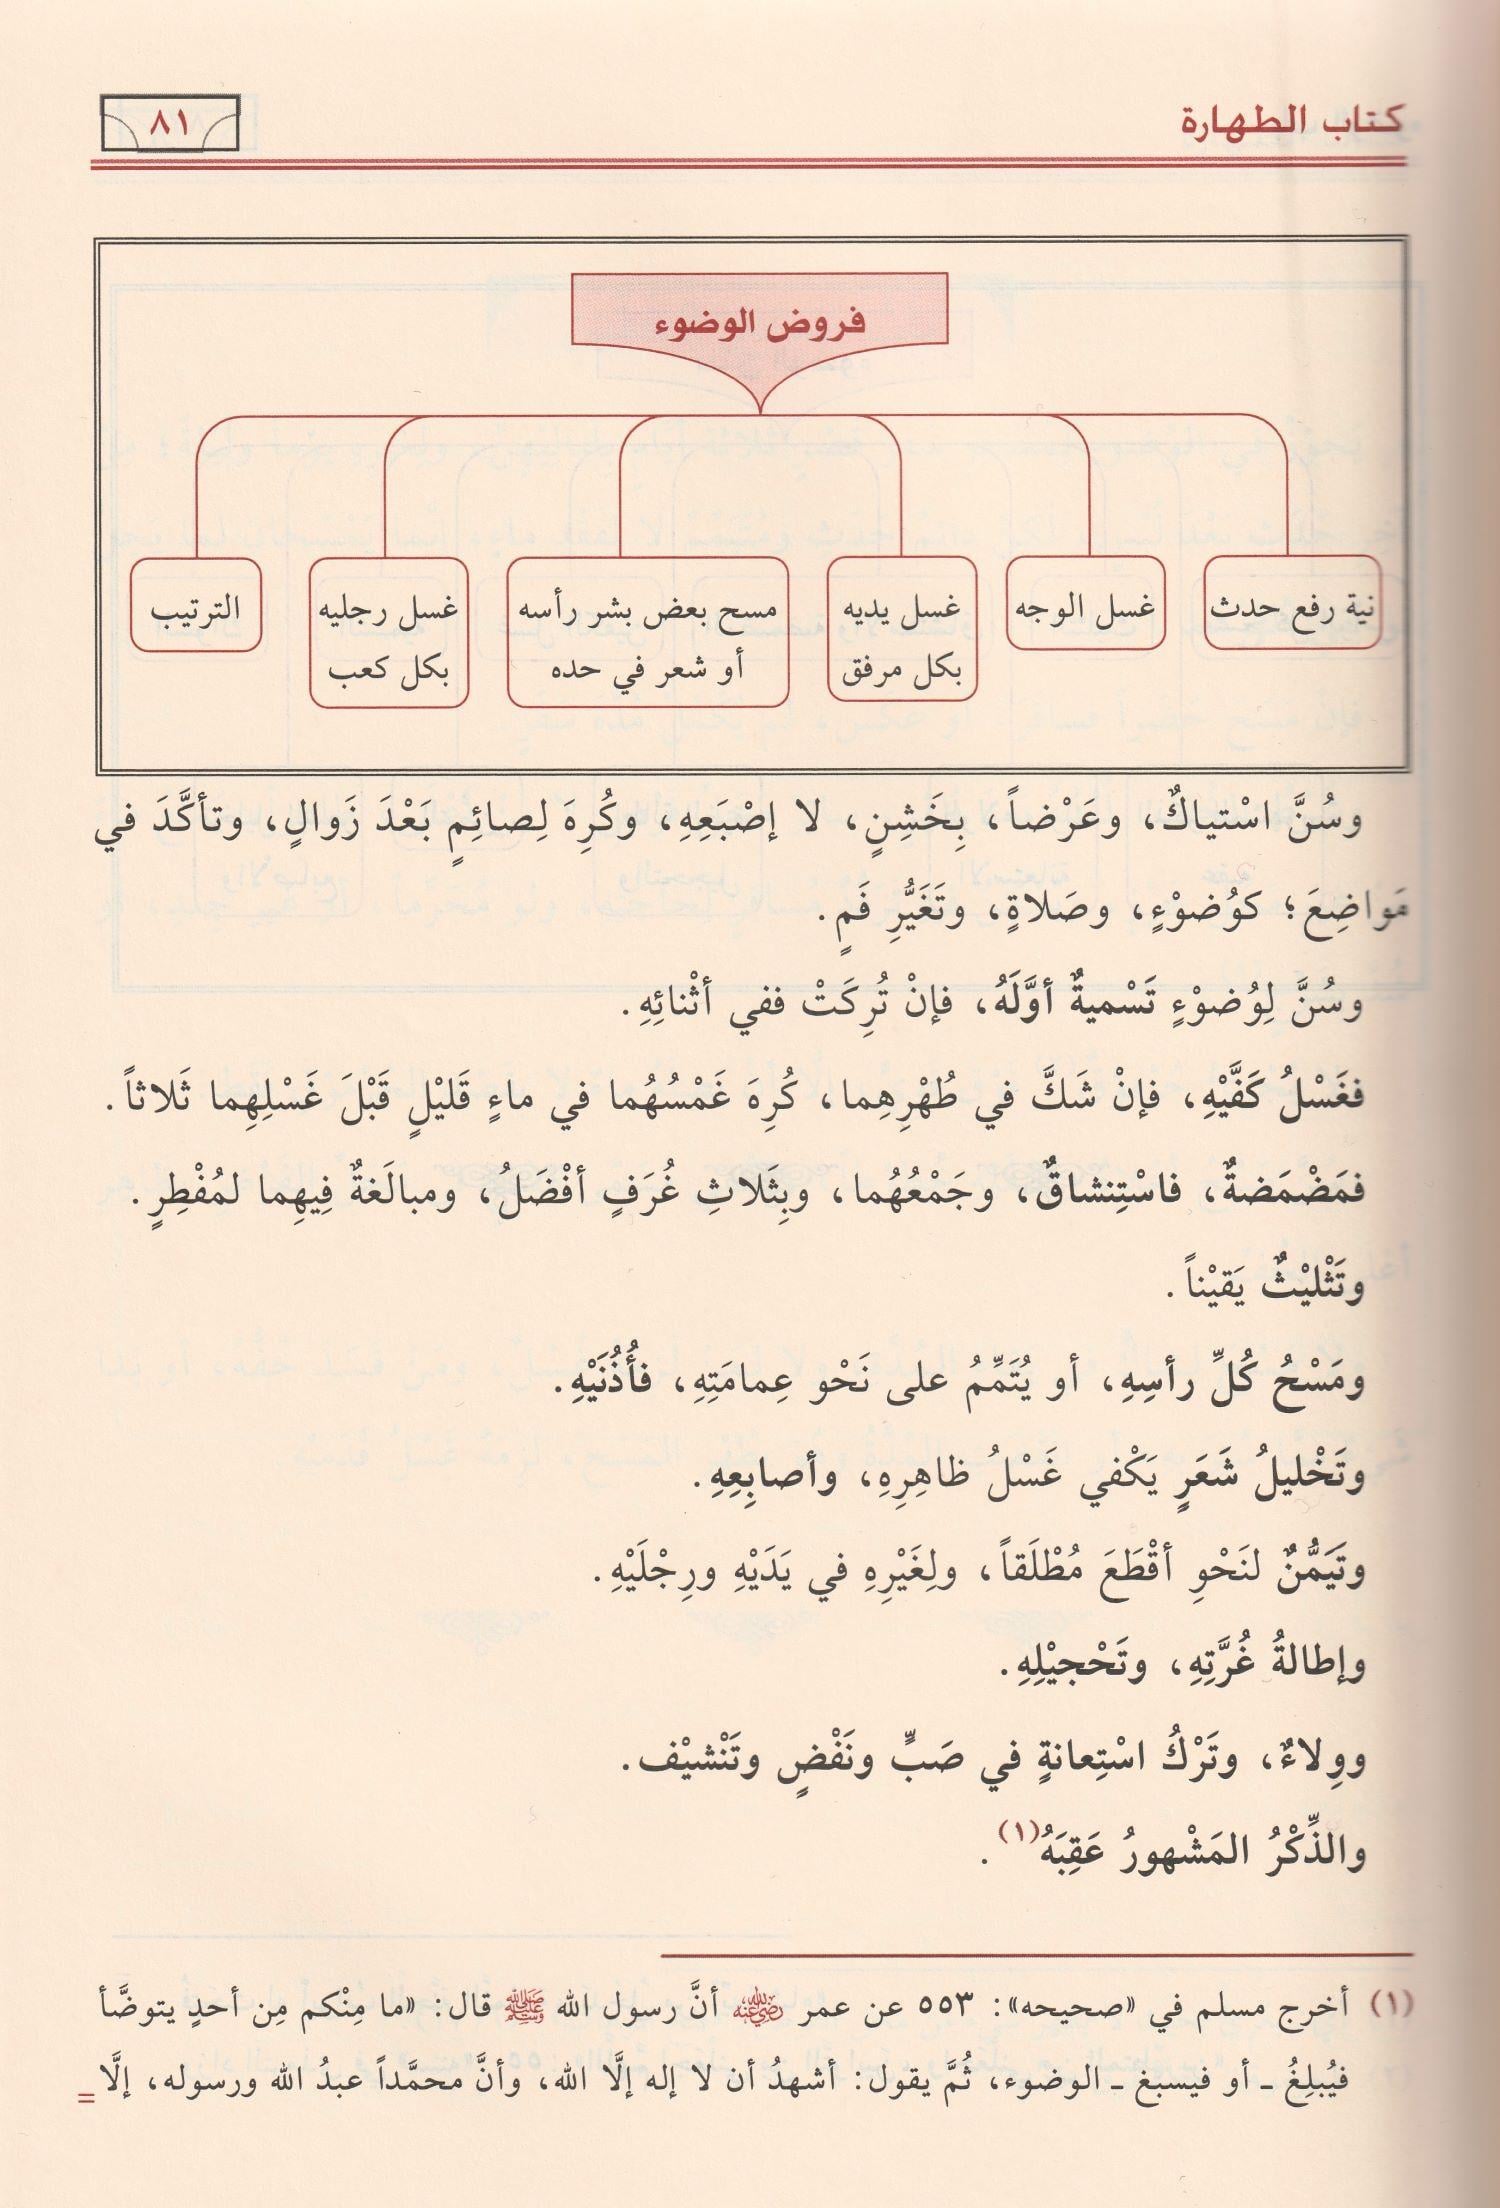 كتاب الطهارة
٨١
فروض الوضوء
نية رفع حدث
غسل الوجه
غسل يديه
بكل مرفق
مسح بعض بشر رأسه
أو شعر في حده
غسل رجليه
بكل كعب
الترتيب
وسُنَّ اسْتياكٌ، وعَرْضاً، بِخَشِنٍ، لا إصْبَعِهِ، وكُرِهَ لِصائِمٍ بَعْدَ زَوالٍ، وتأكَّدَ في
مَواضِعَ؛ كوُضوْءٍ، وصَلاةٍ، وتَغَيُّرِ فَمٍ.
وسُنَّ لِوُضوْءٍ تَسْميةٌ أوَّلَهُ، فإنْ تُرِكَتْ ففي أثْنائِهِ.
فغَسْلُ كَفَّيْهِ، فإنْ شَكَّ في طُهْرِهِما، كُرِهَ غَمْسُهُما في ماءٍ قَليْلٍ قَبْلَ غَسْلِهِما ثَلاثاً.
فمَضْمَضةٌ، فاسْتِنشاقٌ، وجَمْعُهُما، وبِثَلاثِ غُرَفٍ أفْضَلُ، ومبالَغةٌ فِيهِما لمُفْطِرٍ.
وتَثْليْثٌ يَقيْناً.
ومَسْحُ كُلِّ رأسِهِ، أو يُتَمِّمُ على نَحْوِ عِمامَتِهِ، فأُذُنَيْهِ.
وتَخْليلُ شَعَرٍ يَكْفي غَسْلُ ظاهِرِهِ، وأصابِعِهِ.
وتَيَمُّنٌ لنَحْوِ أقْطَعَ مُطْلَقاً، ولِغَيْرِهِ في يَدَيْهِ ورِجْلَيْهِ.
وإطالةُ غُرَّتِهِ، وتَحْجيْلِهِ.
ووِلاءٌ، وتَرْكُ اسْتِعانةٍ في صَبٍّ ونَفْضٍ وتَنْشيْف.
والذِّكْرُ المَشْهورُ عَقِبَهُ(١).
(١) أخرج مسلم في «صحيحه»: ٥٥٣ عن عمر رضي الله عنه أنَّ رسول الله ﷺ قال: «ما مِنْكم مِن أحدٍ يتوضَّأ
فيُبلِغُ ـ أو فيسبغ ـ الوضوء، ثُمَّ يقول: أشهدُ أن لا إله إلَّا الله، وأنَّ محمَّداً عبدُ الله ورسوله، إلَّا =